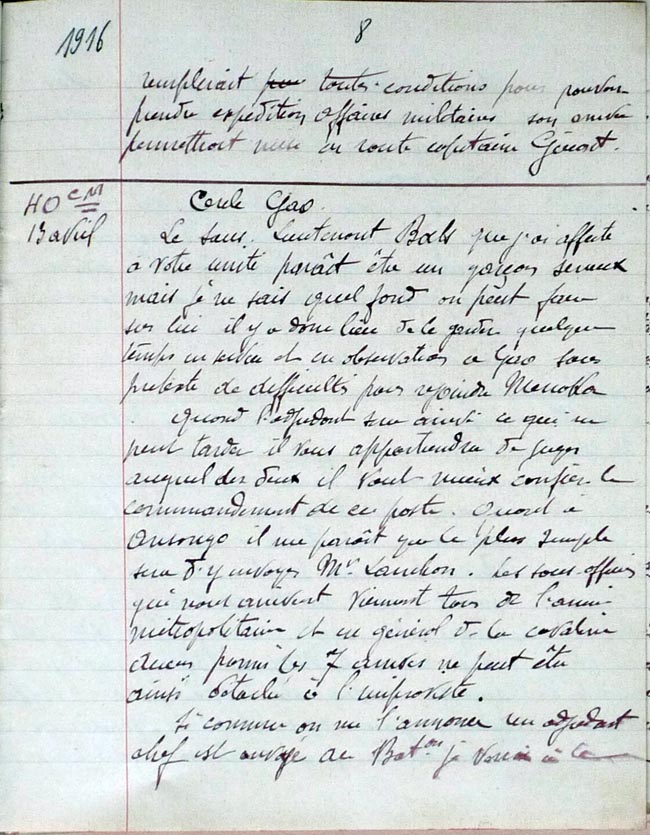 1916
8
remplirait toutes conditions pour pouvoir
prendre expédition affaires militaires son arrivée
permettrait mise en route capitaine
40 CM
13 avril
Cercle Gao.
Le sous-lieutenant que j'ai affecté
à votre unité paraît être un garçon sérieux
mais je ne sais quel fond on peut faire
sur lui il y a donc lieu de le garder quelque
temps en service et en observation à Gao sous
prétexte de difficultés pour rejoindre Menaka
Quand l'adjudant sera arrivé ce qui ne
peut tarder il vous appartiendra de juger
auquel des deux il vaut mieux confier le
commandement de ce poste. Quant à
Ansongo il me paraît que le plus simple
sera d'y envoyer Mr
. Les sous-officiers
qui nous arrivent viennent tous de l'armée
métropolitaine et en général de la cavalerie
aucun parmi les 7 arrivés ne peut être
ainsi détaché à l'improviste.
Si comme on me l'annonce un adjudant
chef est envoyé au Baton je verrai à le